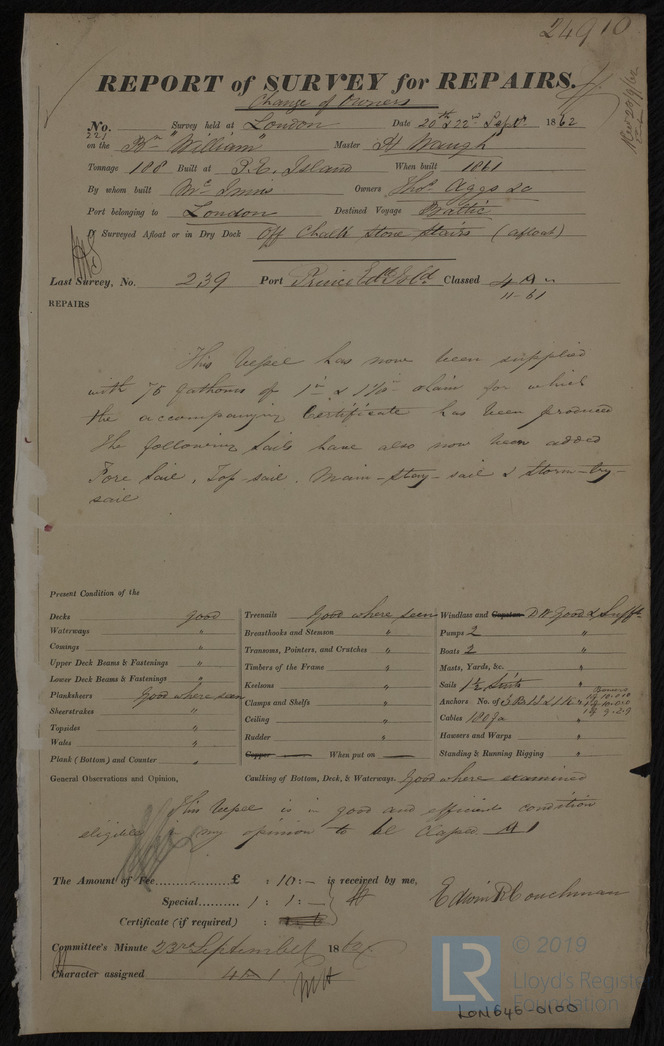 24910
REPORT of SURVEY for REPAIRS.
Change of Owners
No. 221 Survey held at London Date 20th & 22nd Sept. 1862
on the Bn "William" Master H Waugh
Tonnage 188 Built at P.E. Island When built 1861
By whom built McInnis Owners Thos Aggs
Port belonging to London Destined Voyage Baltic
If Surveyed Afloat or in Dry Dock Off Chalk Stone Stairs (afloat)
Last Survey, No. 239 Port Prince Ed. Isld. Classed 4 A
11-61
REPAIRS
This Vessel has now been supplied
with 75 fathoms of 1 in & chain for which
the accompanying Certificate has been produced
The following Sails have also now been added
Fore Sail, Top-sail, Main-Stay-sail & Storm-try-
sail
Present Condition of the
Decks good
Waterways "
Comings "
Upper Deck Beams & Fastenings "
Lower Deck Beams & Fastenings "
Planksheers Good where seen
Sheerstrakes "
Topsides "
Wales "
Plank (Bottom) and Counter "
Treenails Good where seen
Breasthooks and Stemson "
Transoms, Pointers, and Crutches "
Timbers of the Frame "
Keelsons "
Clamps and Shelfs "
Ceiling "
Rudder "
Copper When put on
Windlass and Capstan Good & Sufft
Pumps 2 "
Boats 2 "
Masts, Yards, &c. "
Sails 1½ Suits "
Anchors No. of 3
Cables "
Hawsers and Warps "
Standing & Running Rigging "
General Observations and Opinion, Caulking of Bottom, Deck, & Waterways. Good where examined
This Vessel is in good and efficient condition
eligible in my opinion to be Classed A 1
The Amount of Fee............... £ : 10 : - is received by me,
Special.......... 1 : 1 : -
Certificate (if required) :
Edwin R Couchman
Committee's Minute 23rd September 1862
Character assigned 4 A 1
LR
© 2019
Lloyd's Register
Foundation
LON646-0100